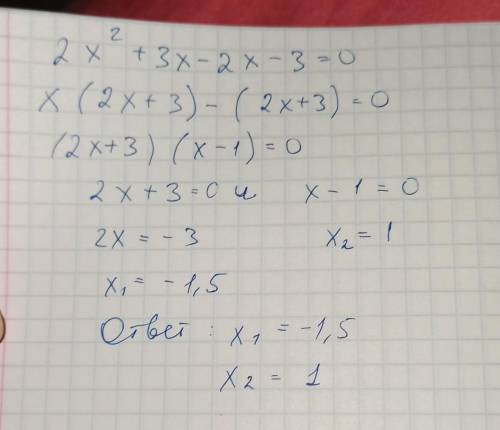 2x² + 3x - 2x - 3 = 0
x (2x + 3) - (2x + 3) = 0
(2x + 3) (x - 1) = 0
2x + 3 = 0 и x - 1 = 0
2x = - 3 x₂ = 1
x₁ = - 1,5
Ответ: x₁ = -1,5
x₂ = 1